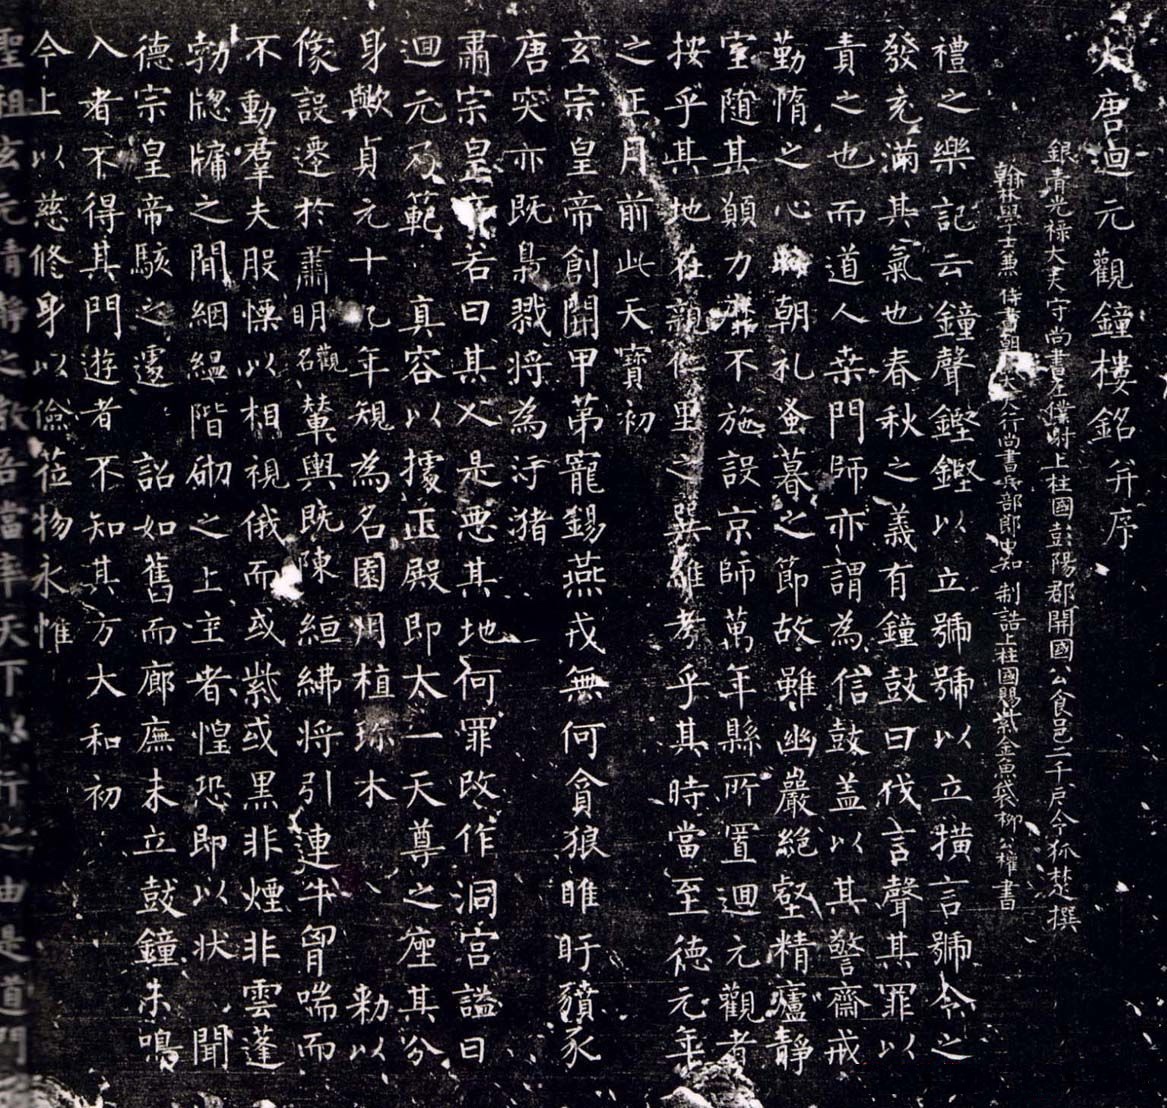 大唐迴元觀鐘樓銘并序
銀青光祿大夫守尚書左僕射上柱國彭陽郡開國公食邑二千戶令狐楚撰
翰林學士兼侍書朝大夫行尚書兵部郎中知制誥上柱國賜紫金魚袋柳公權書
禮之樂記云鐘聲鏗鏗以立號號以立橫言號令之
發充滿其氣也春秋之義有鐘鼓曰伐言聲其罪以
責之也而道人桒門師亦謂為信鼓盖以其警齋戒
勤惰之心時朝礼蚤暮之節故雖幽巖絕壑精廬靜
室隨其願力靡不施設京師萬年縣所置迴元觀者
按乎其地在親仁里之巽維考乎其時當至德元年
之正月前此天寶初
玄宗皇帝創開甲第寵錫燕戎無何貪狼睢盱豶豕
唐突亦既梟戮將為汙猪
肅宗皇帝若曰其人是惡其地何罪改作洞宮謚曰
迴元乃範真容以據正殿即太一天尊之座其分
身歟貞元十九年規為名園用植珎木敕以
像設遷於肅明觀名輦輿既陳絙紼將引連牛胷喘而
不動羣夫股慄以相視俄而或紫或黑非煙非雲蓬
勃牕牖之間絪緼階砌之上主者惶恐即以狀聞
德宗皇帝駭之遽詔如舊而廊廡未立鼓鐘未鳴
入者不得其門遊者不知其方大和初
今上以慈修身以儉莅物永惟
聖祖玄元清靜之教吾當率天下以行之由是道門